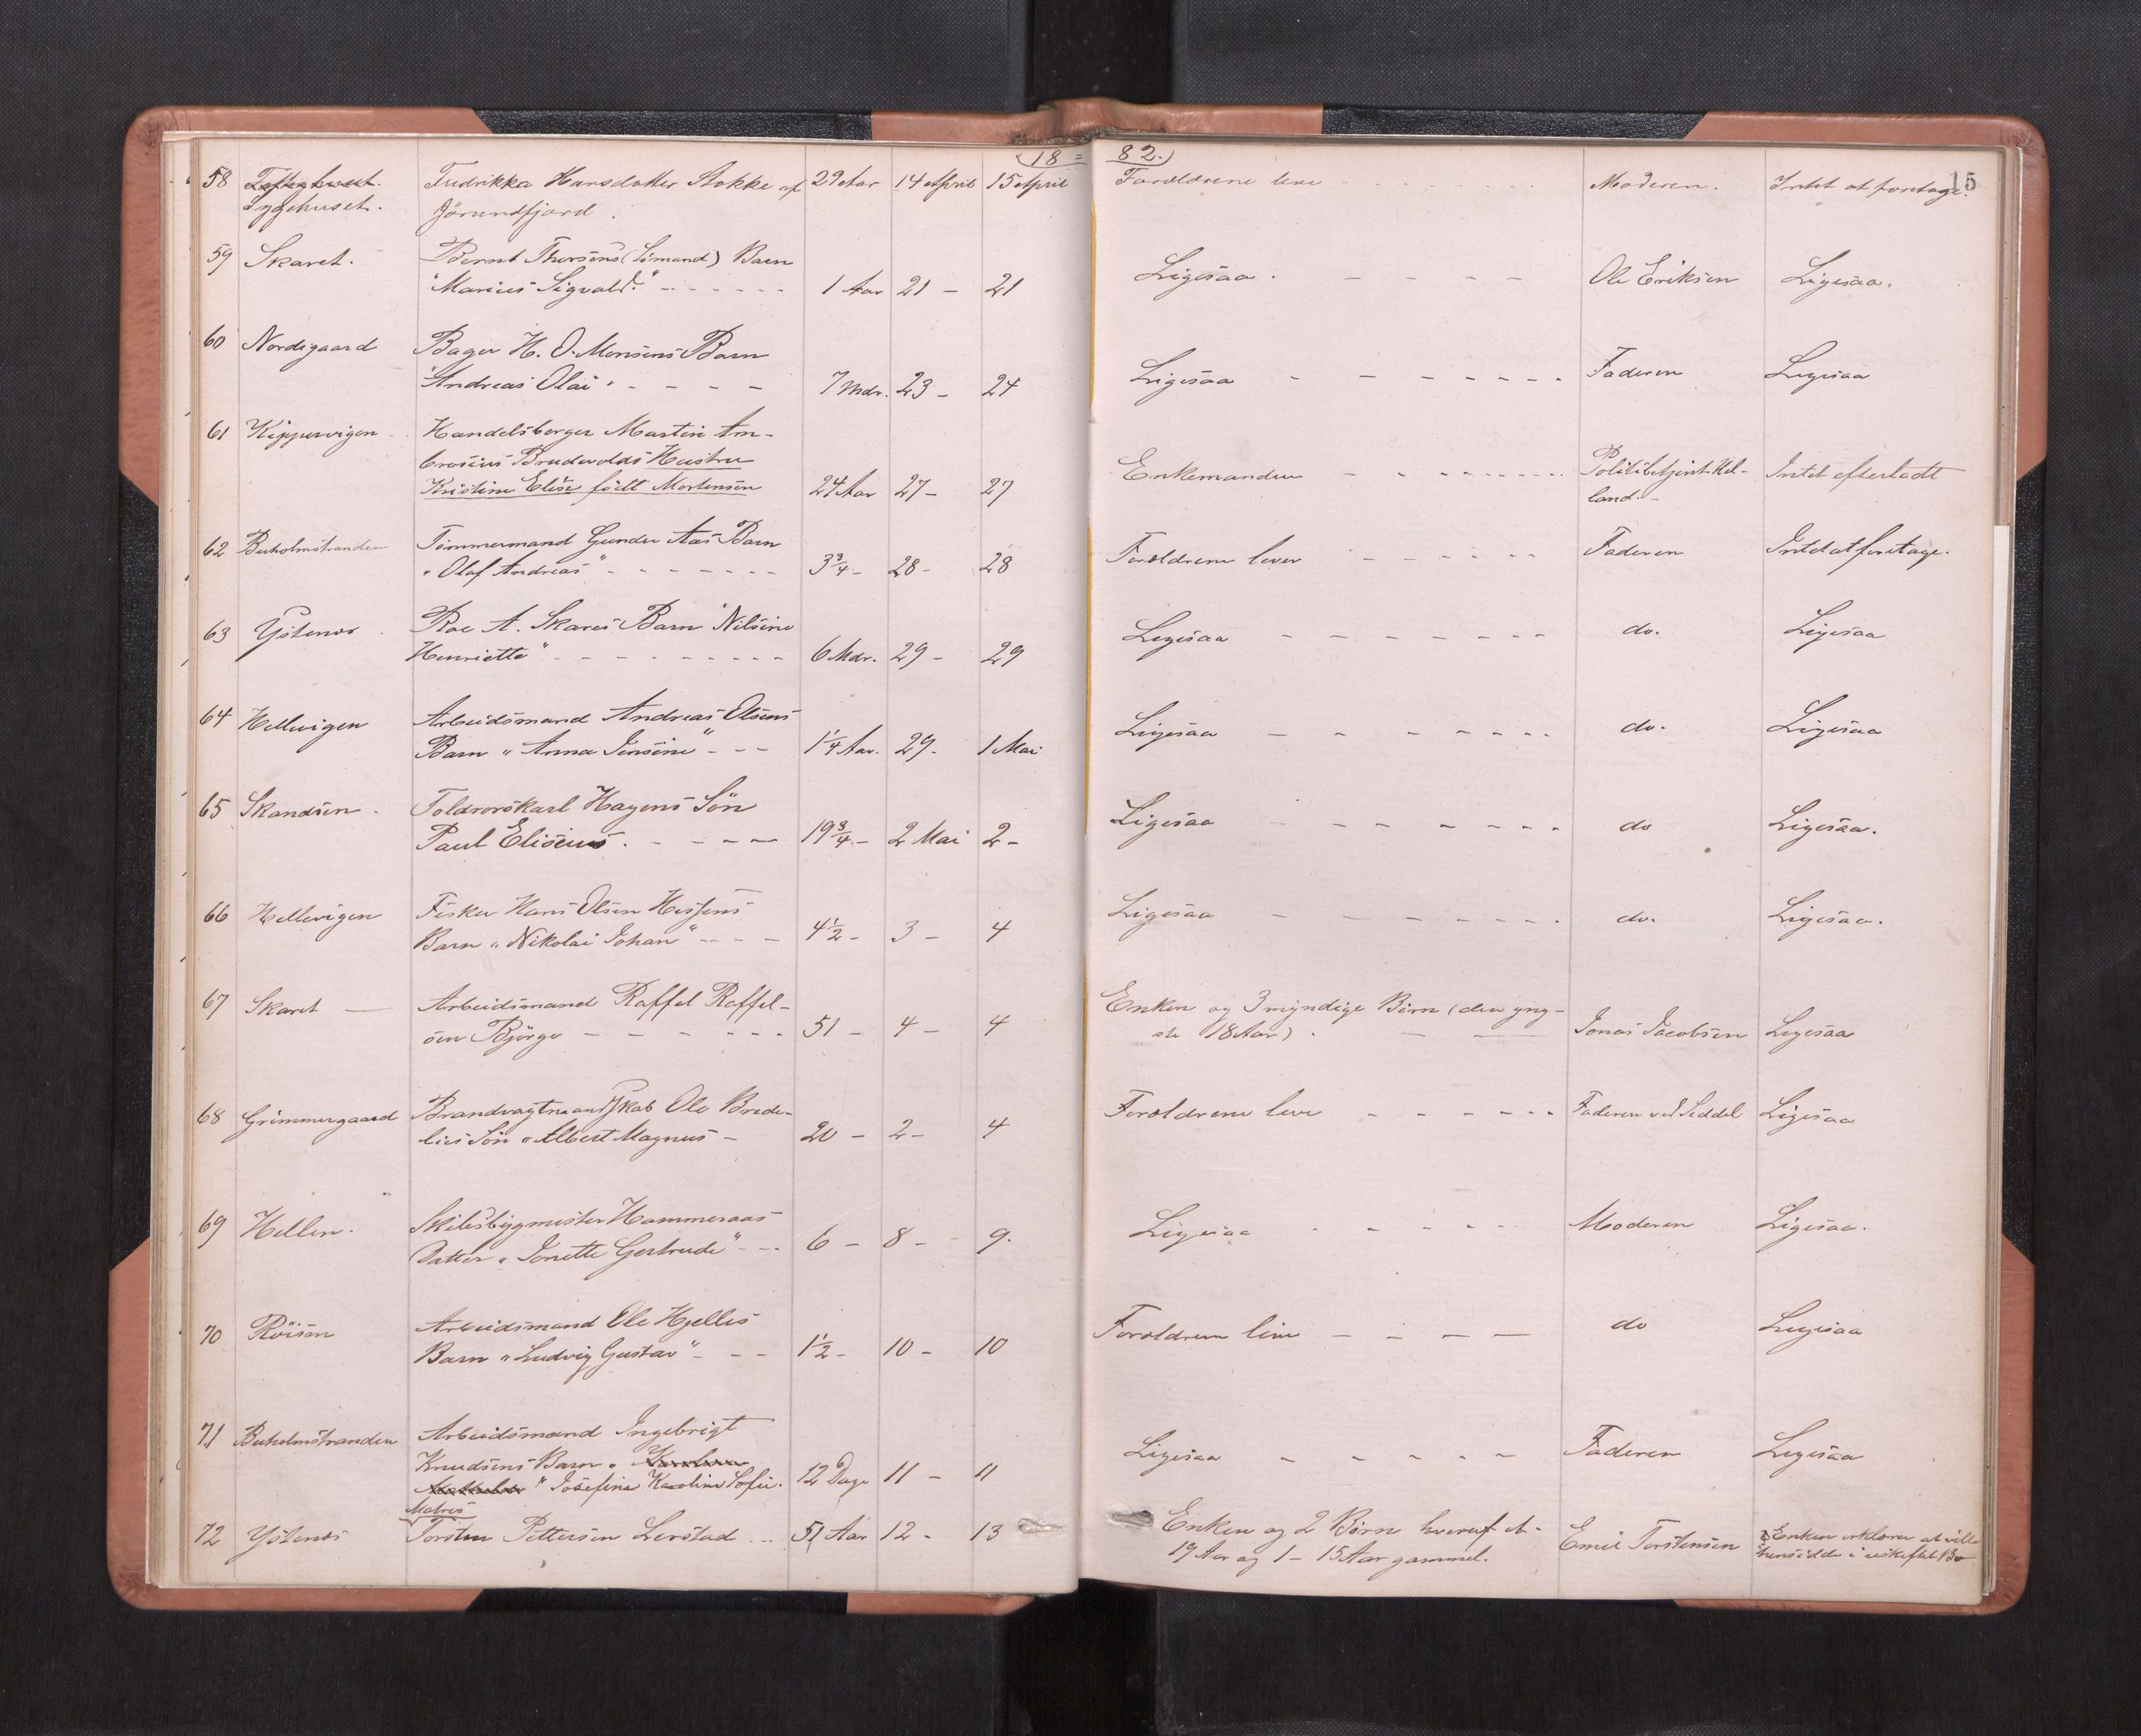 18 = 82.
15
58 Sygehuset. Fredrikka Hansdatter Stokke af 29 Aar 14 April 15 April Forældrene leve Moderen. Intet at foretage.
Jörundfjord.
59 Skaret. Bernt Thorsens (Sömand) Barn
"Marius Sigvald" 1 Aar 21 - 21 Ligesaa. Ole Eriksen Ligesaa.
60 Nordigaard Bager H. O. Monsens Barn
"Andreas Olai" 7 Mdr. 23 - 24 Ligesaa Faderen Ligesaa
61 Kippervigen Handelsborger Martin Am-
brosius Brudevolds Hustru
Kristine Elise födt Mortensen 24 Aar 27 - 27 Enkemanden Politibetjent Hel- Intet efterladt
land.
62 Buholmstranden Tömmermand Gunder Aas Barn
"Olaf Andreas" 3 3/4 - 28 - 28 Forældrene lever Faderen Intet at foretage.
63 Ystenes Roe A. Skares Barn "Nilsine
Henriette" 6 Mdr. 29 - 29 Ligesaa do. Ligesaa
64 Hellevigen Arbeidsmand Andreas Olsens
Barn "Anna Jensine" 1 1/4 Aar. 29. 1 Mai Ligesaa do. Ligesaa
65 Skandsen Toldrorskarl Hagens Sön
Paul Eliseius. 19 3/4 - 2 Mai 2 - Ligesaa do Ligesaa.
66 Hellevigen Fisker Hans Olsen Hessens
Barn "Nikolai Johan" 4 1/2 - 3 - 4 Ligesaa do. Ligesaa.
67 Skaret Arbeidsmand Raffel Raffel-
sen Björge 51 - 4 - 4 Enken og 3 myndige Börn (den yng-
ste 18 Aar). Jonas Jacobsen Ligesaa
68 Grimmergaard Brandvagtmandskab Ole Brude-
lies Sön "Albert Magnus - 20 - 2 - 4 Forældrene leve Faderen ved Seddel Ligesaa
69 Hellen. Skibsbygmester Hammeraas
Datter "Jonette Gertrude" 6 - 8 - 9. Ligesaa Moderen Ligesaa.
70 Röisen Arbeidsmand Ole Hjelles
Barn "Ludvig Gustav" 1 1/2 - 10 - 10 Forældrene leve do Ligesaa
71 Buholmstranden Arbeidsmand Ingebrigt
Knudsens Barn "
"Josefine Karoline Sofie. 12 Dage 11 - 11 Ligesaa Faderen Ligesaa
Matros
72 Ystenes Torsten Pettersen Lerstad 51 Aar 12 - 13 Enken og 2 Börn hveraf et - Emil Torstensen Enken erklærer at ville
19 Aar og 1 - 15 Aar gammel. hensidde i uskiftet Bo